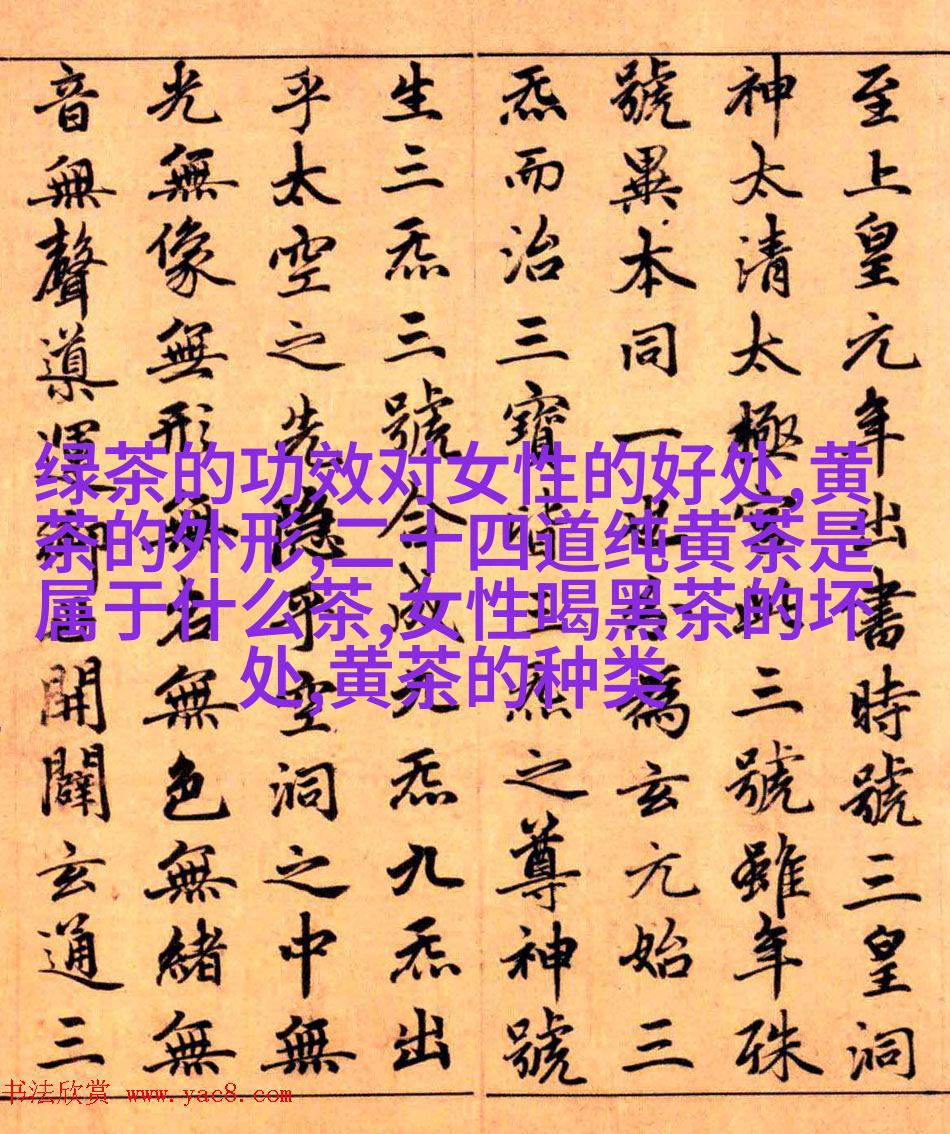 至上皇元年出書時號三皇洞
神太清太極宮此三號雖年殊
號異本同一也為玄元始三
炁而治三寳皆三炁之尊神號
生三炁三號合成九炁九炁出
乎太空之先隐乎空洞之中無
光無像無形無名無色無緒無
音無聲導運御世開闢玄通三
绿茶的功效对女性的好处,黄
茶的外形,二十四道纯黄茶是
属于什么茶,女性喝黑茶的坏
处,黄茶的种类
书法欣赏 www.yac8.com